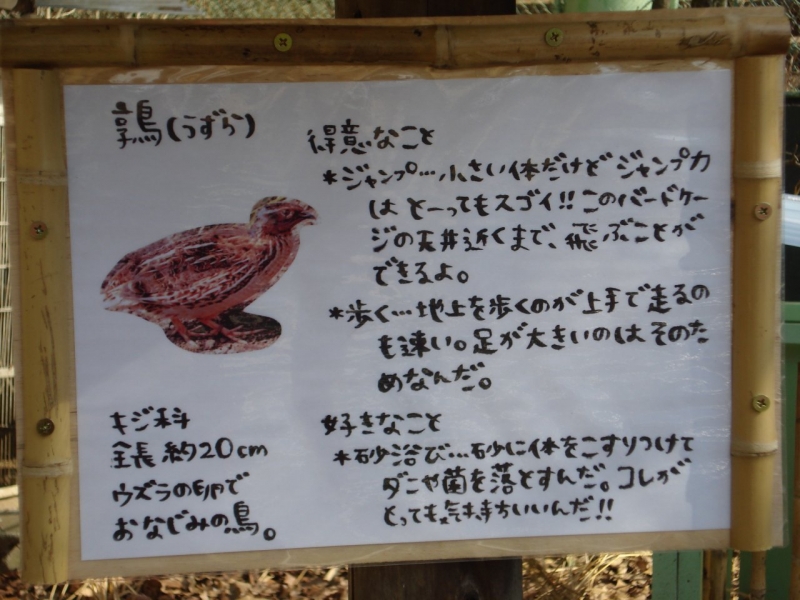 鶉(うずら)
キジ科
全長 約20cm
ウズラの卵で
おなじみの鳥。
得意なこと
*ジャンプ…小さい体だけどジャンプ力
は とーってもスゴイ!!このバードケー
ジの天井近くまで、飛ぶことが
できるよ。
*歩く…地上を歩くのが上手で走るの
も速い。足が大きいのはそのた
めなんだ。
好きなこと
*砂浴び…砂に体をこすりつけて
ダニや菌を落とすんだ。コレが
とっても気持ちいいんだ!!